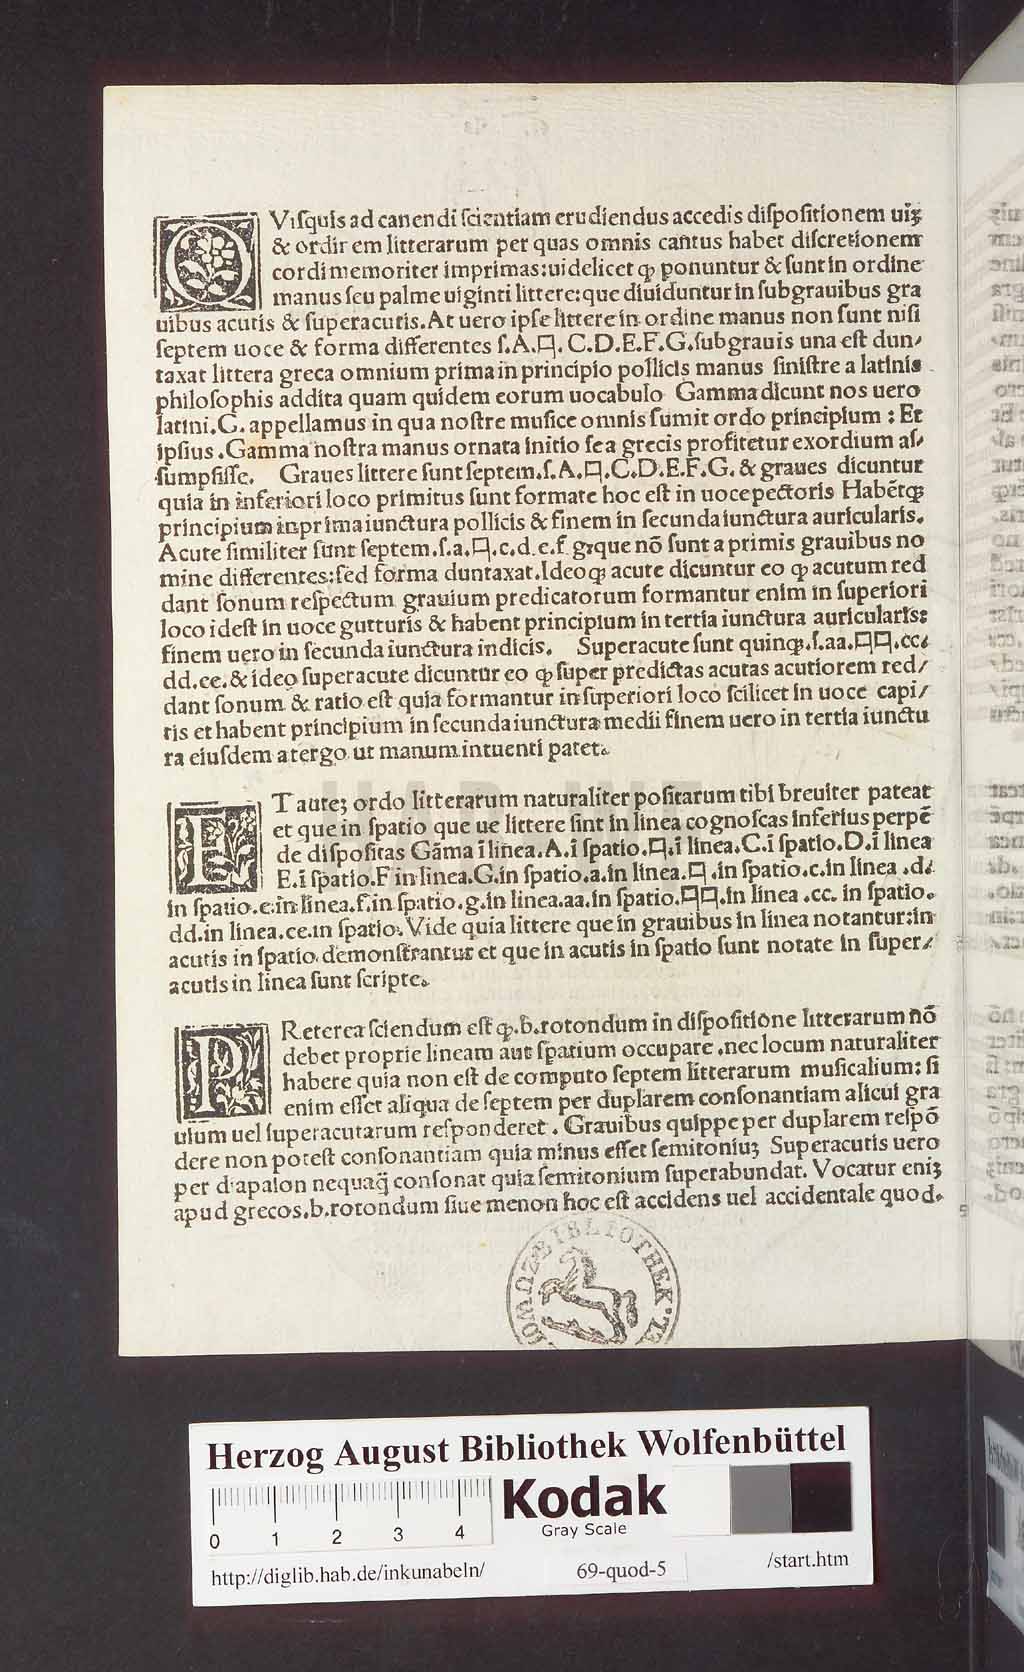 QVisquis ad canendi scientiam erudiendus accedis dispositionem uiꝫ
& ordirem litterarum per quas omnis cantus habet discretionem
cordi memoriter imprimas:uidelicet ꝙ ponuntur & sunt in ordine
manus seu palme uiginti littere:que diuiduntur in subgrauibus gra
uibus acutis & superacutis.At uero ipse littere in ordine manus non sunt nisi
septem uoce & forma differentes s.A.♮.C.D.E.F.G.subgrauis una est dun/
taxat littera greca omnium prima in principio pollicis manus sinistre a latinis
philosophis addita quam quidem eorum uocabulo Gamma dicunt nos uero
latini.G. appellamus in qua nostre musice omnis sumit ordo principium : Et
ipsius .Gamma nostra manus ornata initio se a grecis profitetur exordium as/
sumpsisse. Graues littere sunt septem.s.A.♮.C.D.E.F.G. & graues dicuntur
quia in inferiori loco primitus sunt formate hoc est in uoce pectoris Habētꝙ
principium in prima iunctura pollicis & finem in secunda iunctura auricularis.
Acute similiter sunt septem.s.a.♮.c.d.e.f g:que nō sunt a primis grauibus no
mine differentes:sed forma duntaxat.Ideoꝙ acute dicuntur eo ꝙ acutum red
dant sonum respectum grauium predicatorum formantur enim in superiori
loco idest in uoce gutturis & habent principium in tertia iunctura auricularis:
finem uero in secunda iunctura indicis. Superacute sunt quinꝙ.s.aa.♮♮.cc.
dd.ee.& ideo superacute dicuntur eo ꝙ super predictas acutas acutiorem red/
dant sonum & ratio est quia formantur in superiori loco scilicet in uoce capi/
tis et habent principium in secunda iunctura medii finem uero in tertia iunctu
ra eiusdem a tergo ut manum intuenti patet.
ET auteꝫ ordo litterarum naturaliter positarum tibi breuiter pateat
et que in spatio que ue littere sint in linea cognoscas inferius perpē
de dispositas Gāma ī linea.A.ī spatio.♮.ī linea.C.ī spatio.D.ī linea
E.ī spatio.F in linea.G.in spatio.a.in linea.♮.in spatio.c.in linea .d.
in spatio.e.in linea.f.in spatio.g.in linea.aa.in spatio.♮♮.in linea .cc. in spatio.
dd.in linea.ee.in spatio. Vide quia littere que in grauibus in linea notantur:in
acutis in spatio demonstrantur et que in acutis in spatio sunt notate in super/
acutis in linea sunt scripte.
PReterea sciendum est ꝙ.b.rotondum in dispositione litterarum nō
debet proprie lineam aut spatium occupare .nec locum naturaliter
habere quia non est de computo septem litterarum musicalium: si
enim esset aliqua de septem per duplarem consonantiam alicui gra
uium uel superacutarum responderet . Grauibus quippe per duplarem respō
dere non potest consonantiam quia minus esset semitoniuꝫ Superacutis uero
per diapason nequaq̄ consonat quia semitonium superabundat. Vocatur eniꝫ
apud grecos.b.rotondum siue menon hoc est accidens uel accidentale quod.
BIBLIOTHEK
Herzog August Bibliothek Wolfenbüttel
0 1 2 3 4
Kodak
Gray Scale
http://diglib.hab.de/inkunabeln/ 69-quod-5 /start.htm